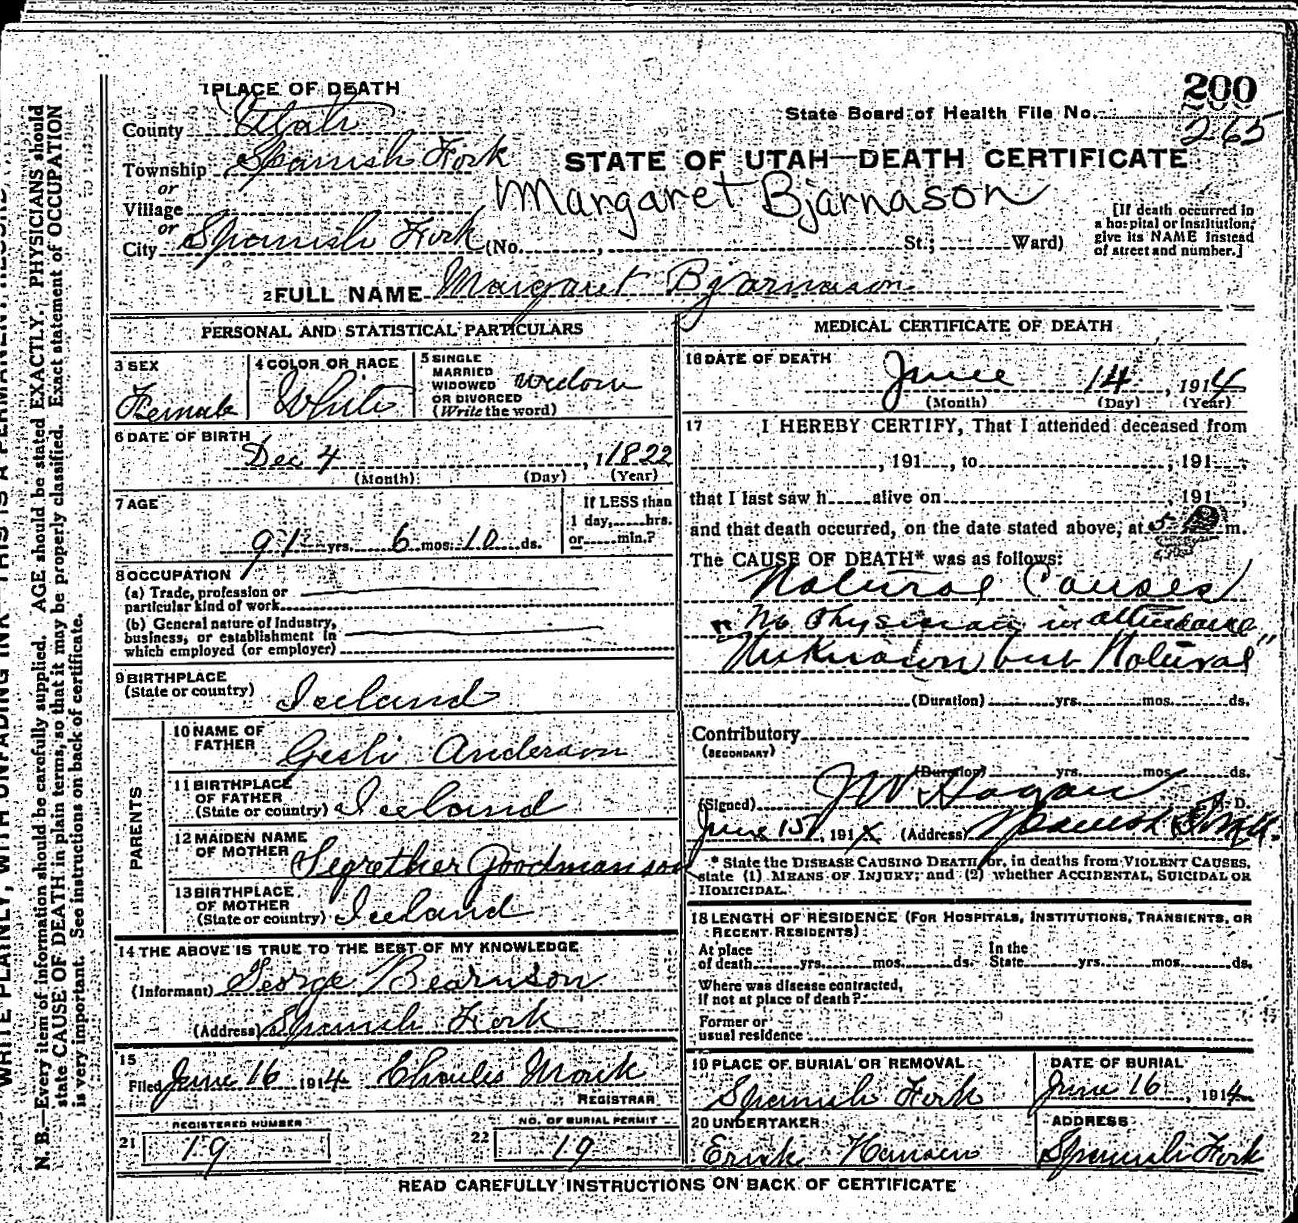 1 PLACE OF DEATH
200
State Board of Health File No.
265
County Utah
Township Spanish Fork
or
Village
or
City Spanish Fork (No. , St.; Ward)
STATE OF UTAH—DEATH CERTIFICATE
Margaret Bjarnason
[If death occurred in
a hospital or institution,
give its NAME instead
of street and number.]
2 FULL NAME Margaret Bjarnason
PERSONAL AND STATISTICAL PARTICULARS
3 SEX
Female
4 COLOR OR RACE
White
5 SINGLE
MARRIED
WIDOWED
OR DIVORCED
(Write the word)
widow
6 DATE OF BIRTH
Dec 4 , 1 1822
(Month) (Day) (Year)
7 AGE
91 yrs. 6 mos. 10 ds.
If LESS than
1 day, hrs.
or min.?
8 OCCUPATION
(a) Trade, profession or
particular kind of work
(b) General nature of Industry,
business, or establishment in
which employed (or employer)
9 BIRTHPLACE
(State or country) Iceland
PARENTS
10 NAME OF
FATHER Gesli Anderson
11 BIRTHPLACE
OF FATHER
(State or country) Iceland
12 MAIDEN NAME
OF MOTHER Segrether Goodmanson
13 BIRTHPLACE
OF MOTHER
(State or country) Iceland
14 THE ABOVE IS TRUE TO THE BEST OF MY KNOWLEDGE
(Informant) George Bearnson
(Address) Spanish Fork
15
Filed June 16 1914 Charles Monk
REGISTRAR
21 REGISTERED NUMBER
19
22 NO. OF BURIAL PERMIT
19
MEDICAL CERTIFICATE OF DEATH
16 DATE OF DEATH
June 14 , 1914
(Month) (Day) (Year)
17 I HEREBY CERTIFY, That I attended deceased from
, 191 , to , 191 ,
that I last saw h alive on , 191 ,
and that death occurred, on the date stated above, at 5 m.
The CAUSE OF DEATH* was as follows:
Natural Causes
"No Physician in attendance
Unknown but Natural"
(Duration) yrs. mos. ds.
Contributory
(SECONDARY)
(Duration) yrs. mos. ds.
(Signed) J W Hagan M. D.
June 15, 191 (Address) Spanish Fork
* State the DISEASE CAUSING DEATH, or, in deaths from VIOLENT CAUSES,
state (1) MEANS OF INJURY; and (2) whether ACCIDENTAL, SUICIDAL OR
HOMICIDAL.
18 LENGTH OF RESIDENCE (FOR HOSPITALS, INSTITUTIONS, TRANSIENTS, OR
RECENT RESIDENTS)
At place
of death yrs. mos. ds.
In the
State yrs. mos. ds.
Where was disease contracted,
if not at place of death?
Former or
usual residence
19 PLACE OF BURIAL OR REMOVAL
Spanish Fork
DATE OF BURIAL
June 16 , 1914
20 UNDERTAKER
Erick Hansen
ADDRESS
Spanish Fork
READ CAREFULLY INSTRUCTIONS ON BACK OF CERTIFICATE
WRITE PLAINLY, WITH UNFADING INK—THIS IS A PERMANENT RECORD
N. B.—Every item of information should be carefully supplied. AGE should be stated EXACTLY. PHYSICIANS should
state CAUSE OF DEATH in plain terms, so that it may be properly classified. Exact statement of OCCUPATION
is very important. See instructions on back of certificate.